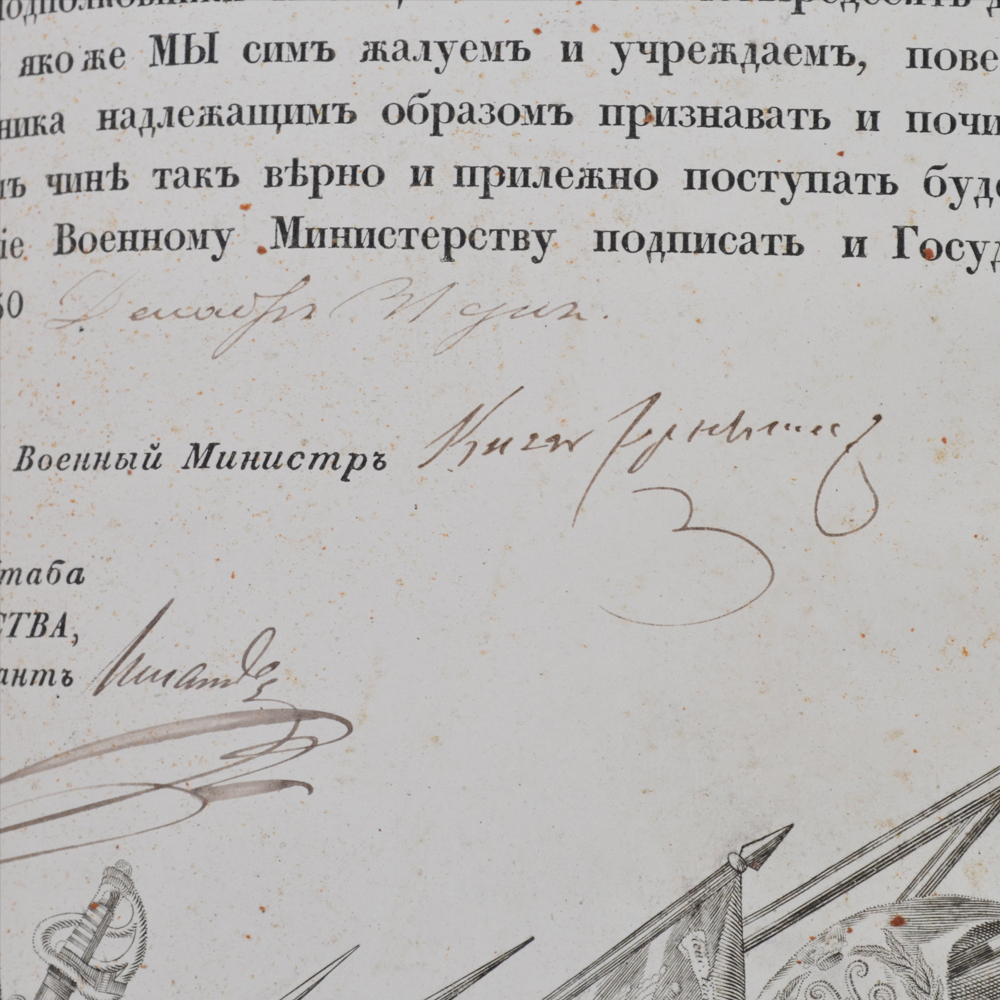 яко же МЫ симъ жалуемъ и учреждаемъ, пове
ника надлежащимъ образомъ признавать и почи
ъ чинѣ такъ вѣрно и прилежно поступать буде
іе Военному Министерству подписать и Госуд
50 Декабря 31 дня.
Военный Министръ Князь Чернышевъ
таба
СТВА,
антъ